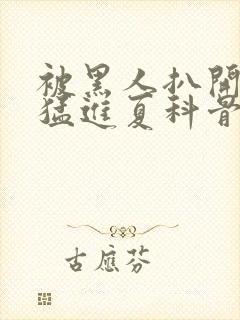 被黑人扒開
猛進夏科骨
古應芬